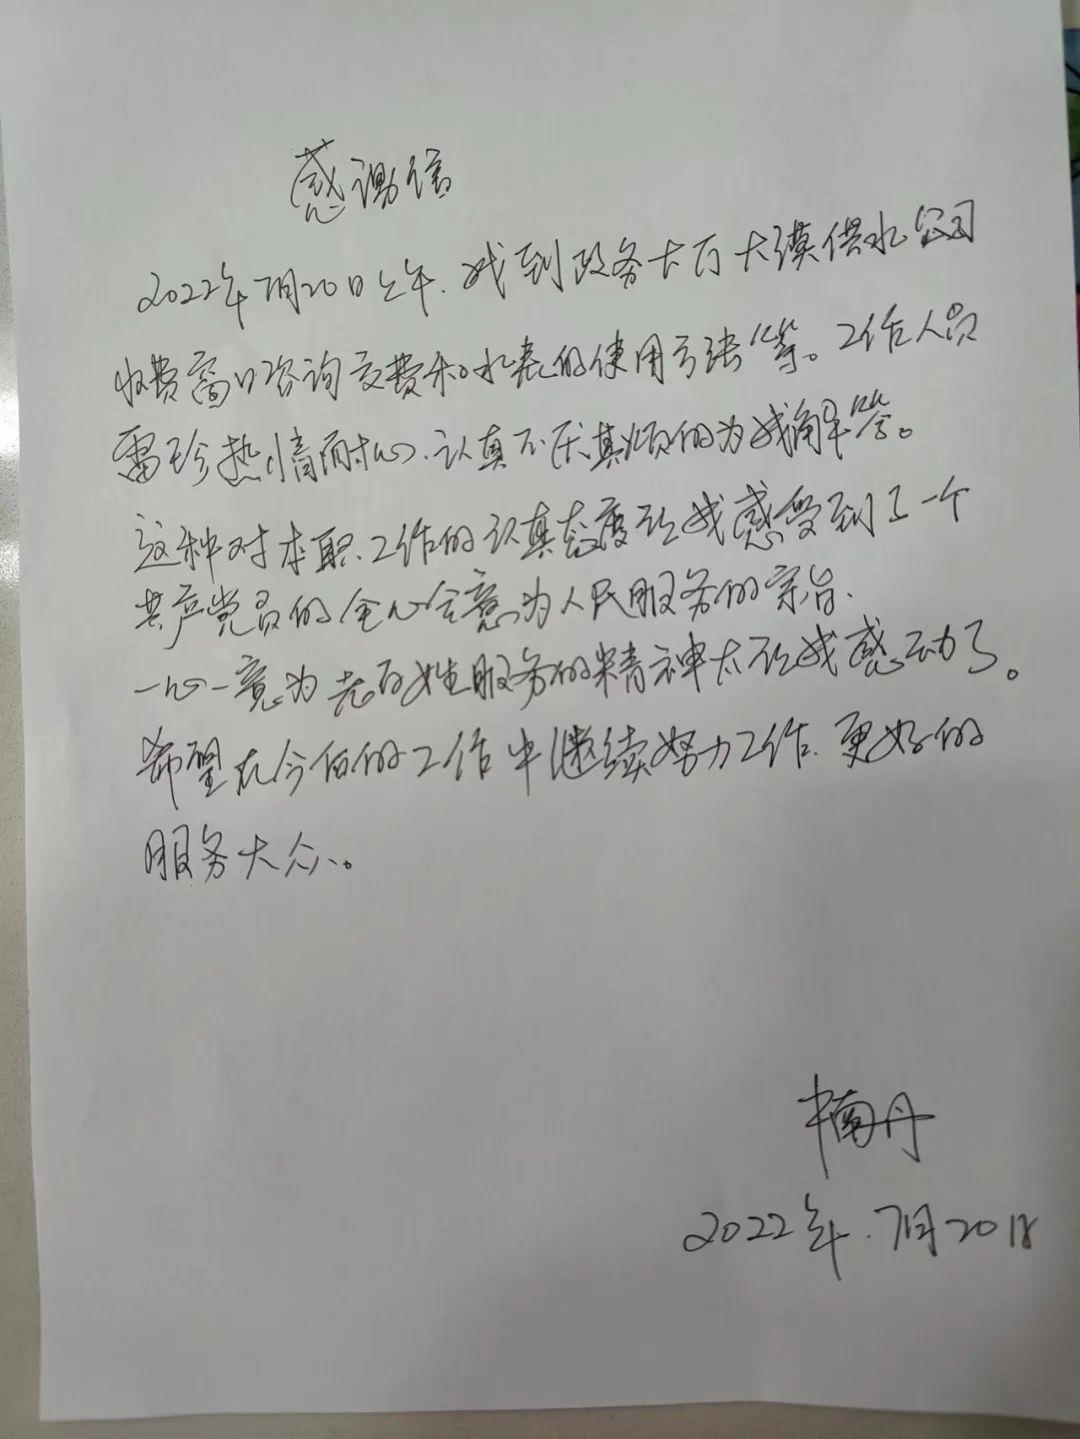 感谢信
2022年7月20日上午.我到政务大厅大漠供水公司
收费窗口咨询交费和水表的使用方法等。工作人员
雷珍热情耐心.认真不厌其烦的为我解答。
这种对本职.工作的认真态度让我感受到了一个
共产党员的全心全意为人民服务的宗旨.
一心一意为老百姓服务的精神太让我感动了。
希望在今后的工作中继续努力工作.更好的
服务大众。
南丹
2022年.7月20日